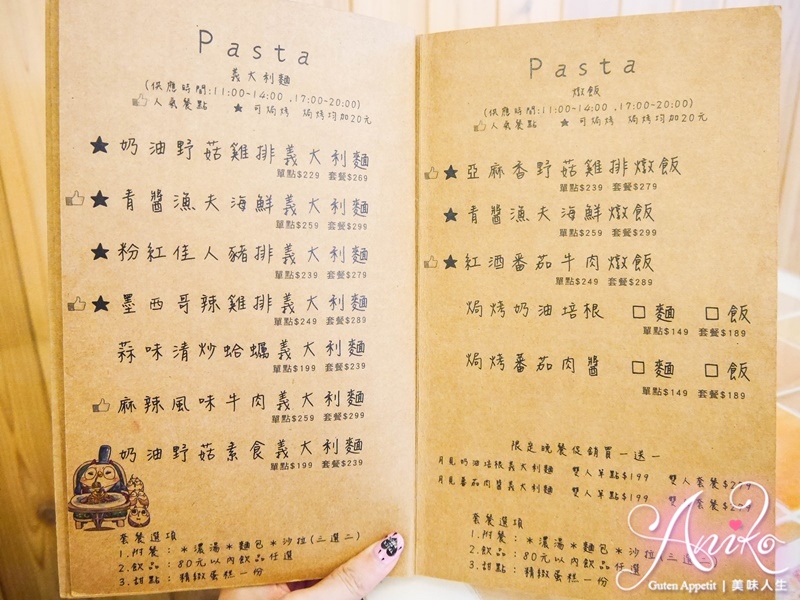 Pasta
義大利麵
(供應時間:11:00~14:00 ,17:00~20:00)
人氣餐點 ★ 可焗烤 焗烤均加20元
★ 奶油野菇雞排義大利麵
單點$229 套餐$269
★ 青醬漁夫海鮮義大利麵
單點$259 套餐$299
★ 粉紅佳人豬排義大利麵
單點$239 套餐$279
★ 墨西哥辣雞排義大利麵
單點$249 套餐$289
蒜味清炒蛤蠣義大利麵
單點$199 套餐$239
麻辣風味牛肉義大利麵
單點$259 套餐$299
奶油野菇素食義大利麵
單點$199 套餐$239
套餐選項
1.附餐: *濃湯*麵包*沙拉(三選二)
2.飲品: 80元以內飲品任選
3.甜點: 精緻蛋糕一份
Pasta
燉飯
(供應時間:11:00~14:00 ,17:00~20:00)
人氣餐點 ★ 可焗烤 焗烤均加20元
★ 亞麻香野菇雞排燉飯
單點$239 套餐$279
★ 青醬漁夫海鮮燉飯
單點$259 套餐$299
★ 紅酒番茄牛肉燉飯
單點$249 套餐$289
焗烤奶油培根 □ 麵 □ 飯
單點$149 套餐$189
焗烤番茄肉醬 □ 麵 □ 飯
單點$149 套餐$189
限定晚餐促銷買一送一
月見奶油培根義大利麵 雙人單點$199 雙人套餐
月見番茄肉醬義大利麵 雙人單點$199 雙人套餐
套餐選項
1.附餐: *濃湯*麵包*沙拉(三選二)
2.飲品: 80元以內飲品任選
3.甜點: 精緻蛋糕一份
Aniko
Guten Appetit | 美味人生